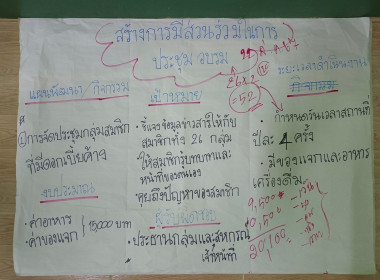 สร้างการมีส่วนร่วมในการ
ประชุม อบรม
แผนพัฒนา/กิจกรรม
① การจัดประชุมกลุ่มสมาชิก
ที่มีดอกเบี้ยค้าง
งบประมาณ
• ค่าอาหาร
• ค่าของแจก
15,000 บาท
เป้าหมาย
• ชี้แจงข้อมูลข่าวสารให้กับ
สมาชิกทั้ง 26 กลุ่ม
• ให้สมาชิกรู้บทบาทและ
หน้าที่ของตนเอง
• คุยถึงปัญหาของสมาชิก
ผู้รับผิดชอบ
- ประธานกลุ่มและสหกรณ์
เจ้าหน้าที่
26x2
= 52
ระยะเวลาดำเนินงาน
กิจกรรม
• กำหนดวันเวลาสถานที่
ปีละ 4 ครั้ง
• มีของแจกและอาหาร
เครื่องดื่ม
9,500
20,100